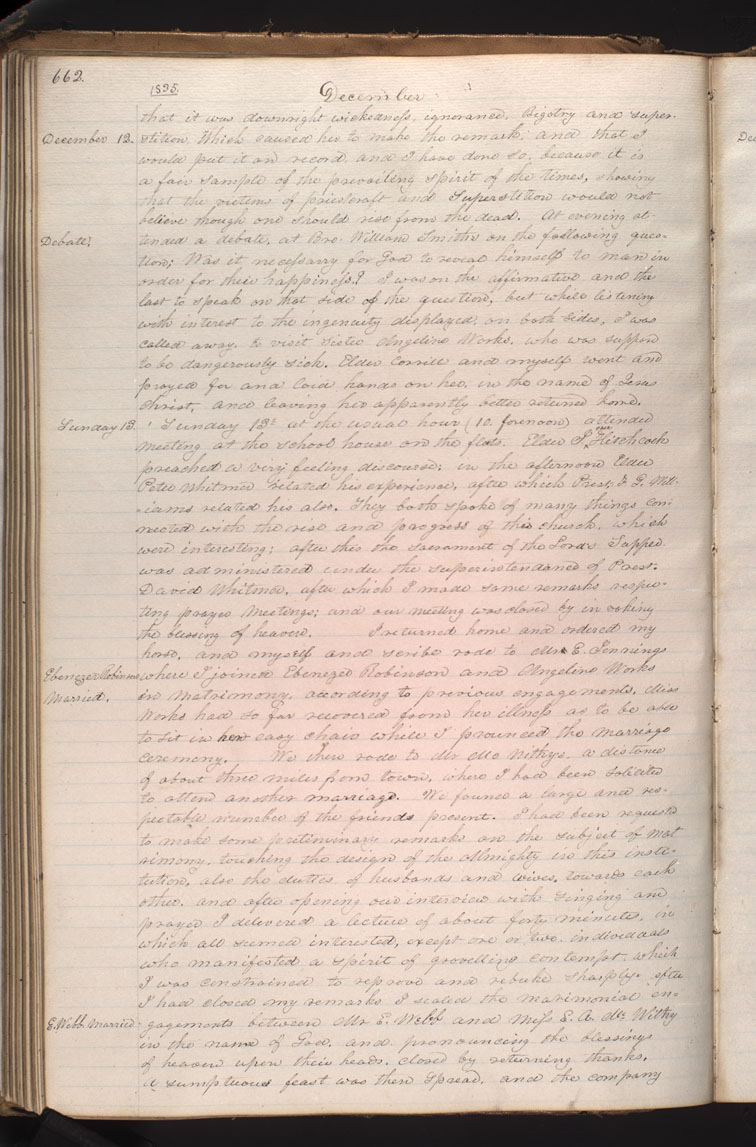 662.
1835.
December
that it was downright wickedness, ignorance, Bigotry and super-
December 12. stition, Which caused her to make the remark, and that I
would put it on record, and I have done so, because it is
a fair sample of the prevailing spirit of the times, showing
that the victims of priestcraft and superstition would not
believe though one should rise from the dead. At evening at-
Debate, tended a debate, at Bro. William Smith's on the following ques-
tion; Was it necessarry for God to reveal himself to man in
order for their happiness.? I was on the affirmative and the
last to speak on that side of the question, but while listening
with interest to the ingenuity displayed, on both sides, I was
called away, to visit sister Angeline Works, who was suppo'd
to be dangerously sick. Elder Corrill and myself went and
prayed for and laid hands on her, in the name of Jesus
Christ, and leaving her apparently better returned home.
Sunday 13. Sunday 13th at the usual hour (10. forenoon) attended
meeting at the school house on the flats. Elder J. Hitchcock
preached a very feeling discourse; in the afternoon Elder
Peter Whitmer related his experience, after which Prest. F. G. Will-
iams related his also. They both spoke of many things con-
nected with the rise and progress of this church, which
were interesting; after this the sacrament of the Lord's Supper
was administered under the superintendance of Prest.
David Whitmer, after which I made some remarks respec-
ting prayer Meetings; and our meeting was closed by in voking
the blessing of heaven. I returned home and ordered my
horse, and myself and scribe rode to Mr. E. Jennings
Ebenezer Robinson where I joined Ebenezer Robinson and Angeline Works
Married. in Matrimony, according to previous engagements, Miss
Works had so far recovered from her illness as to be able
to sit in her easy chair while I pronounced the marriage
ceremony. We then rode to Mr Mc Withys, a distance
of about three miles from town, where I had been solicited
to attend another marriage. We found a large and res-
pectable number of the friends present. I had been requested
to make some preliminary remarks on the subject of mat
rimony, touching the design of the Almighty in this insti-
tution, also the duties of husbands and wives, towards each
other. and after opening our interview with singing and
prayer I delivered a lecture of about forty minutes, in
which all seemed interested, except one or two individuals
who manifested a spirit of grovelling contempt, which
I was constrained to reprove and rebuke sharply. after
I had closed my remarks I sealed the matrimonial en-
E. Webb Married gagements between Mr E. Webb and Miss E. A. Mc Withy
in the name of God, and pronouncing the blessings
of heaven upon their heads, closed by returning thanks.
a sumptuous feast was then spread, and the company